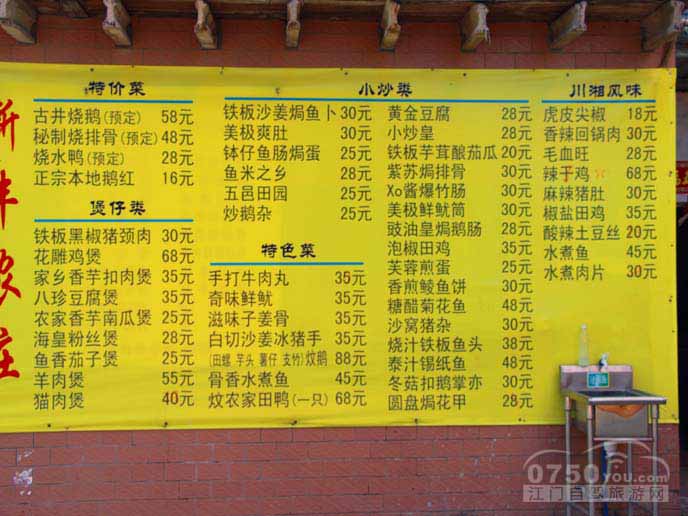 新丰农庄
特价菜
古井烧鹅(预定) 58元
秘制烧排骨(预定) 48元
烧水鸭(预定) 28元
正宗本地鹅红 16元
煲仔类
铁板黑椒猪颈肉 30元
花雕鸡煲 68元
家乡香芋扣肉煲 35元
八珍豆腐煲 35元
农家香芋南瓜煲 25元
海皇粉丝煲 28元
鱼香茄子煲 25元
羊肉煲 55元
猫肉煲 40元
小炒类
铁板沙姜焗鱼卜 30元
美极爽肚 30元
钵仔鱼肠焗蛋 25元
鱼米之乡 28元
五邑田园 25元
炒鹅杂 25元
特色菜
手打牛肉丸 35元
奇味鲜鱿 35元
滋味子姜骨 30元
白切沙姜冰猪手 35元
(田螺 芋头 薯仔 支竹)炆鹅 88元
骨香水煮鱼 45元
炆农家田鸭(一只) 68元
黄金豆腐 28元
小炒皇 28元
铁板芋茸酿茄瓜 20元
紫苏焗排骨 30元
Xo酱爆竹肠 30元
美极鲜鱿筒 30元
豉油皇焗鹅肠 28元
泡椒田鸡 35元
芙蓉煎蛋 25元
香煎鲮鱼饼 30元
糖醋菊花鱼 48元
沙窝猪杂 30元
烧汁铁板鱼头 38元
泰汁锡纸鱼 48元
冬菇扣鹅掌亦 30元
圆盘焗花甲 28元
川湘风味
虎皮尖椒 18元
香辣回锅肉 30元
毛血旺 28元
辣子鸡 68元
麻辣猪肚 30元
椒盐田鸡 35元
酸辣土豆丝 20元
水煮鱼 45元
水煮肉片 30元
0750you.com
江门自驾旅游网